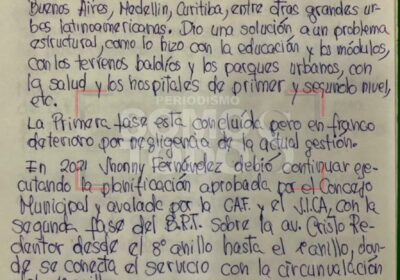 Buenos Aires, Medellin, Curitiba, entre otras grandes ur-
bes latinoamericanas. Dio una solución a un problema
estructural, como lo hizo con la educación y los módulos,
con los terrenos baldíos y los parques urbanos, con
la salud y los hospitales de primer y segundo nivel,
etc.
PERIODISMO
La Primera fase está concluida pero en franco
deterioro por negligencia de la actual gestión.
En 2021 Jhonny Fernández debió continuar eje-
cutando la planificación aprobada por el Concejo
Municipal y avalada por la CAF y el JICA, con la
segunda fase del B.R.T. Sobre la av. Cristo Re-
dentor desde el 8° anillo hasta el 1° anillo, don-
de se conecta el servicio con la circunvalación